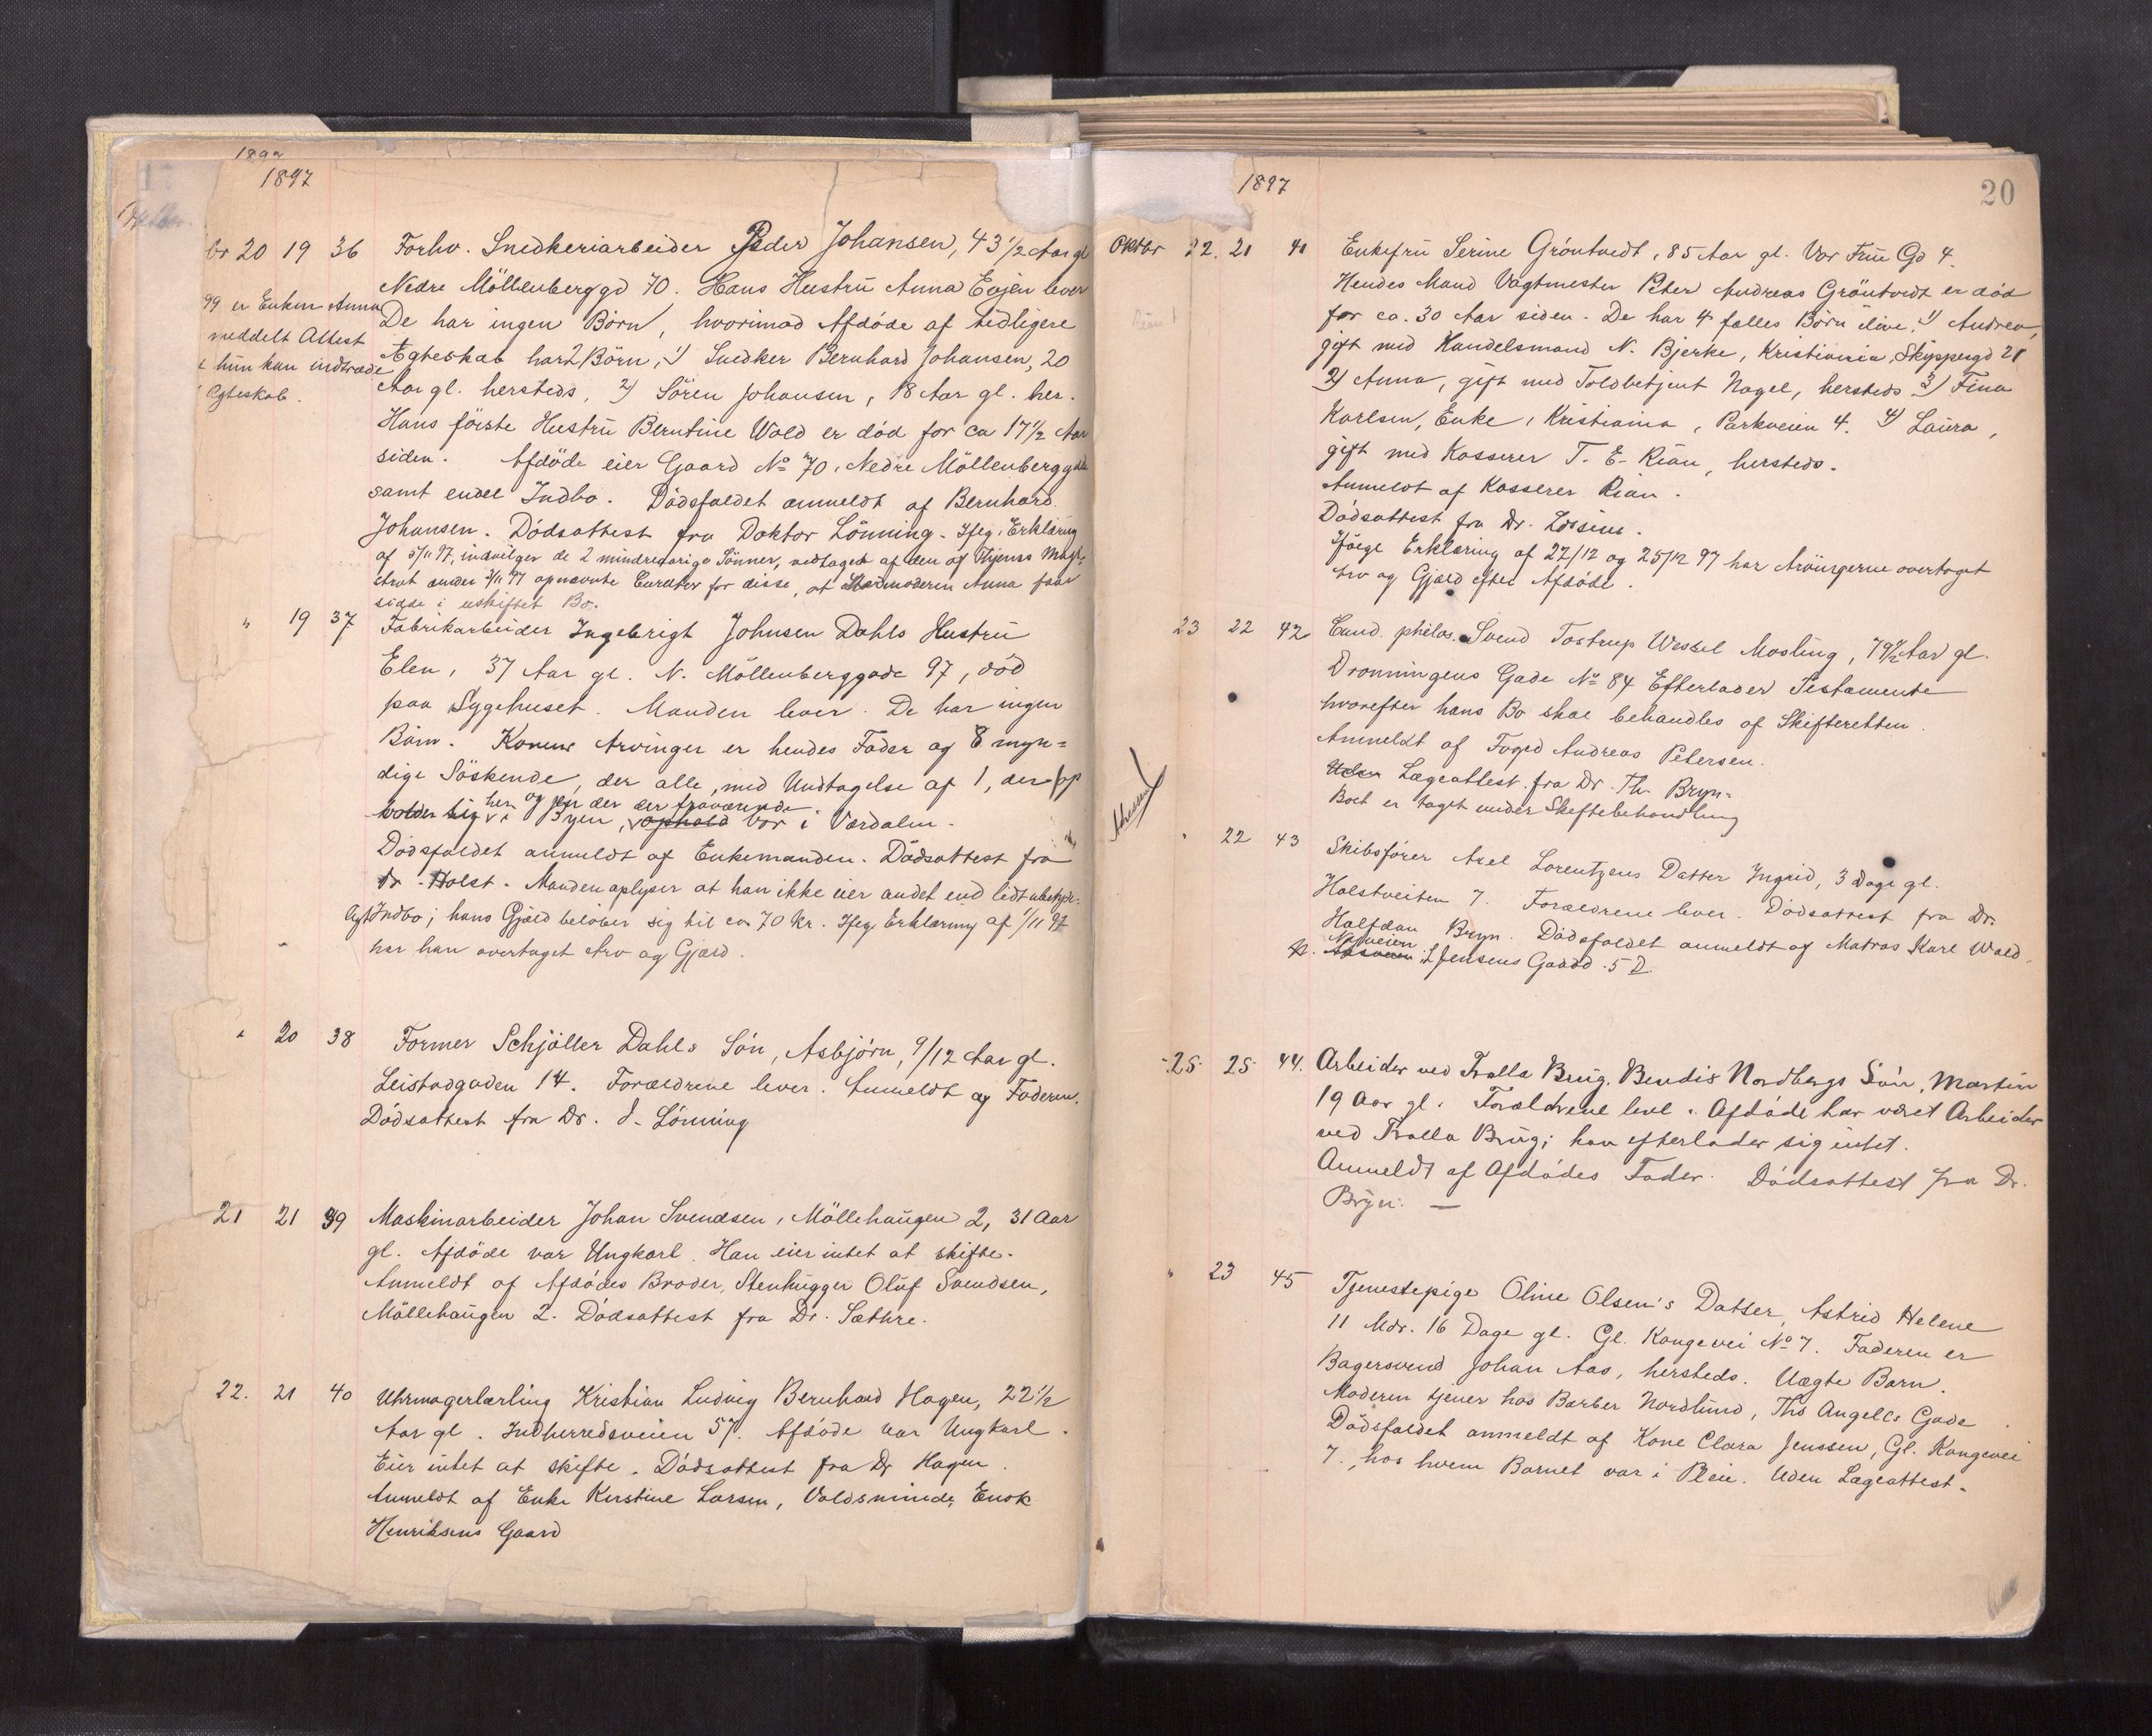 1897
1897
br 20 19 36 Forhv. Snedkeriarbeider Peder Johansen, 43 1/2 Aar gl
Nedre Möllenberggd 70. Hans Hustru Anna Evjen lever
99 er Enken Anna
meddelt Attest
hun kan indtræde
Egteskab.
De har ingen Börn, hvorimod Afdöde af tidligere
Ægteskab har 2 Börn, 1) Snedker Bernhard Johansen, 20
Aar gl. hersteds, 2) Sören Johansen, 18 Aar gl. her.
Hans förste Hustru Berntine Wold er död for ca 17 1/2 Aar
siden. Afdöde eier Gaard No 70, Nedre Möllenberggade
samt endel Indbo. Dödsfaldet anmeldt af Bernhard
Johansen. Dödsattest fra Doktor Lönning. Ifög. Erklæring
af 5/11 97, indvilger de 2 mindreaarige Sönner, vedtaget af den af Byens Magi-
strat under 2/11 97 opnævnte Curator for disse, at Stedmoderen Anna faar
sidde i uskiftet Bo.
" 19 37 Fabrikarbeider Ingebrigt Johnsen Dahls Hustru
Elen, 37 Aar gl. N. Möllenberggade 97, död
paa Sygehuset. Manden lever. De har ingen
Börn. Konens Arvinger er hendes Fader og 8 myn=
dige Söskende, der alle, med Undtagelse af 1, der op
holder sig her i Byen, og er fraværende ophold bor i Værdalen.
Dödsfaldet anmeldt af Enkemanden. Dödsattest fra
Dr. Holst. Manden oplyser at han ikke eier andet end lidt ubetyde-
ligt Indbo; hans Gjæld belöber sig til ca 70 Kr. Ifög Erklæring af 1/11 97
har han overtaget Arv og Gjæld.
" 20 38 Former Schjöller Dahls Sön, Asbjörn, 9/12 Aar gl.
Leistadgaden 14. Forældrene lever. Anmeldt af Faderen.
Dödsattest fra Dr. J. Lönning
21 21 39 Maskinarbeider Johan Svendsen, Möllehaugen 2, 31 Aar
gl. Afdöde var Ungkarl. Han eier intet at skifte.
Anmeldt af Afdödes Broder, Stenhugger Oluf Svendsen,
Möllehaugen 2. Dödsattest fra Dr. Sæthre.
22. 21 40 Uhrmagerlærling Kristian Ludvig Bernhard Hagen, 22 1/2
Aar gl. Indherredsveien 57. Afdöde var Ungkarl.
Eier intet at skifte. Dödsattest fra Dr Hagen.
Anmeldt af Enke Kerstine Larsen, Voldsminde, Enok
Henriksens Gaard
1897
20
Oktbr 22. 21 41 Enkefru Serine Gröntvedt, 85 Aar gl. Vor Frue Gd 4.
Hendes Mand Vagtmester Peter Andreas Gröntvedt er död
for ca. 30 Aar siden. De har 4 fælles Börn ilive, 1) Andrea,
gift med Handelsmand N. Bjerke, Kristiania, Skippergd 21
2) Anna, gift med Toldbetjent Nagel, hersteds 3) Fina
Karlsen, Enke, Kristiania, Parkveien 4. 4) Laura,
gift med Kasserer T. E. Rian, hersteds.
Anmeldt af Kasserer Rian.
Dödsattest fra Dr. Lossius.
Ifölge Erklæring af 22/12 og 25/12 97 har Arvingerne overtaget
Arv og Gjæld efter Afdöde.
23 22 42 Cand. philos. Svend Tostrup Wessel Mosling, 79 1/2 Aar gl.
Dronningens Gade No 84 Efterlader Testamente
hvorefter hans Bo skal behandles af Skifteretten.
Anmeldt af Foged Andreas Petersen.
Uden Lægeattest fra Dr. Th. Bryn.
Boet er taget under Skiftebehandling
" 22 43 Skibsförer Axel Lorentzens Datter Ingrid, 3 Dage gl.
Holstveiten 7. Forældrene lever. Dödsattest fra Dr.
Halfdan Bryn. Dödsfaldet anmeldt af Matros Karl Wold,
Nyveien
Jensens Gaard 5 D.
25 25 44. Arbeider ved Tralla Brug. Bendis Nordbergs Sön, Martin
19 Aar gl. Forældrene leve. Afdöde har været Arbeider
ved Tralla Brug; han efterlader sig intet.
Anmeldt af Afdödes Fader. Dödsattest fra Dr.
Bryn. —
" 23 45 Tjenestepige Oline Olsen's Datter, Astrid Helene
11 Mdr. 16 Dage gl. Gl. Kongevei No 7. Faderen er
Bagersvend Johan Aas, hersteds. Uægte Barn.
Moderen tjener hos Barber Nordlund, Ths Angells Gade
Dödsfaldet anmeldt af Kone Clara Jenssen, Gl. Kongevei
7., hos hvem Barnet var i Pleie. Uden Lægeattest.